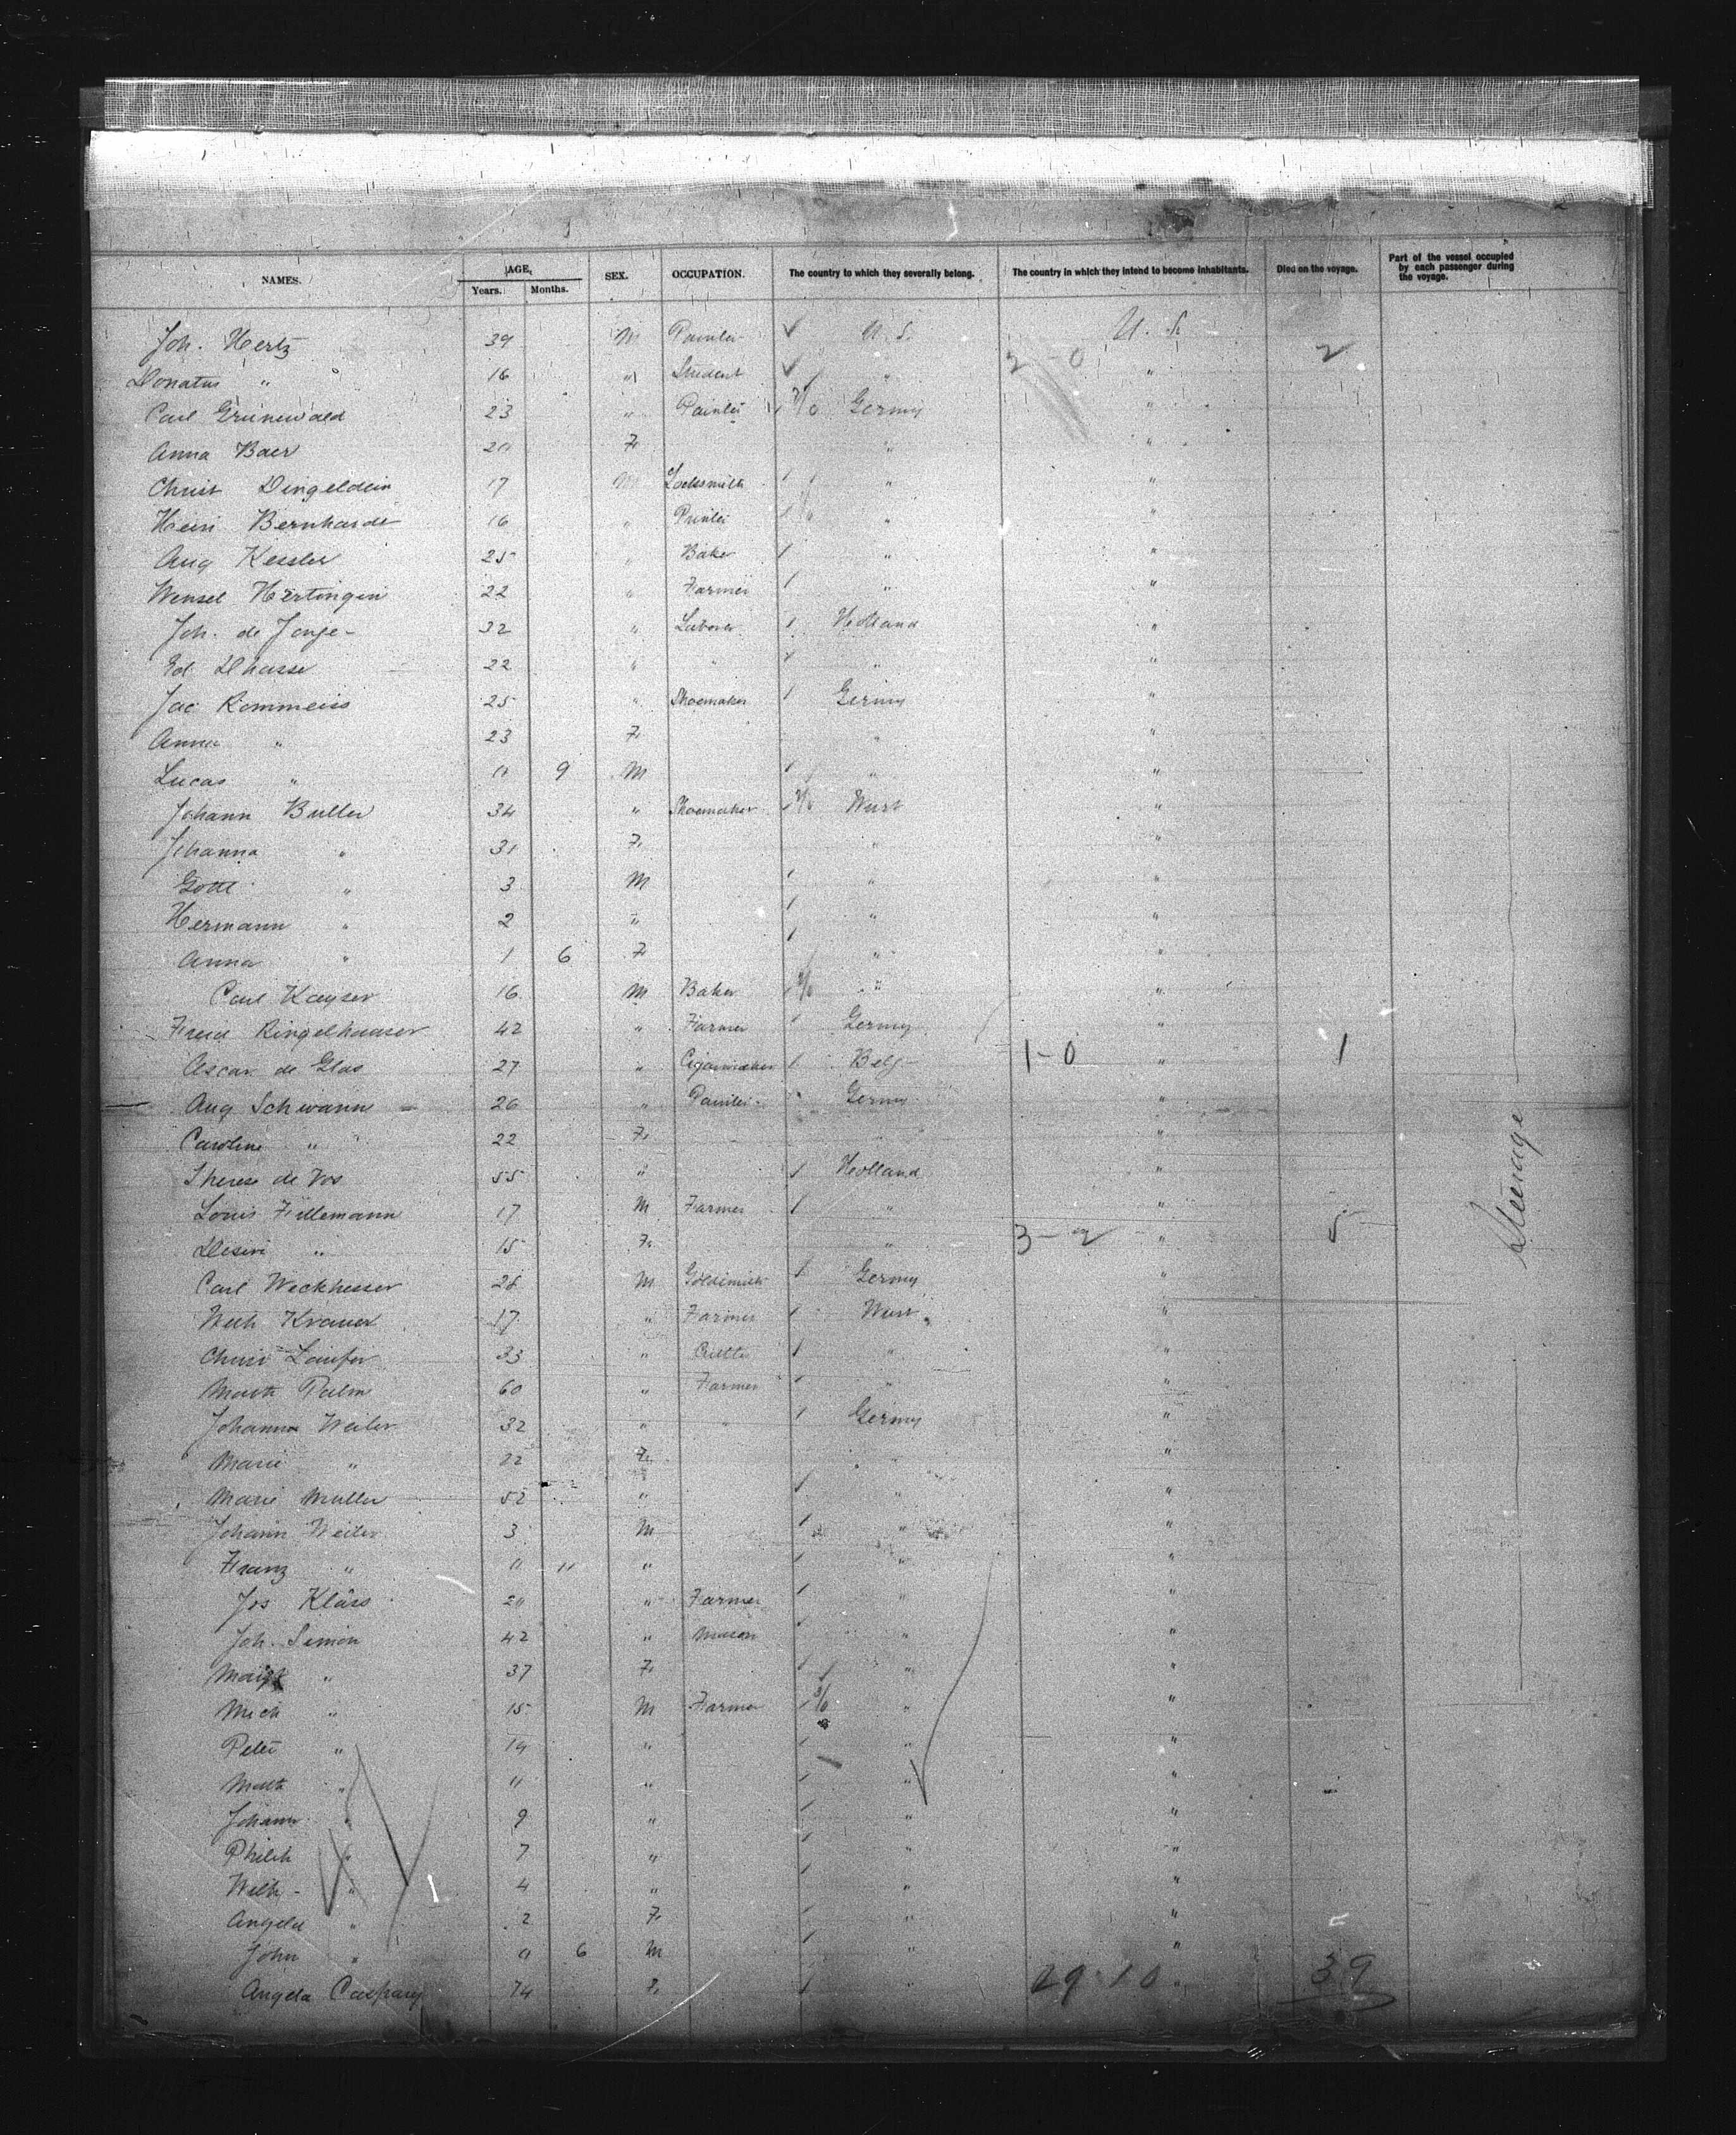 NAMES. AGE, Years. Months. SEX. OCCUPATION. The country to which they severally belong. The country in which they intend to become inhabitants. Died on the voyage. Part of the vessel occupied by each passenger during the voyage.
Joh. Hertz 39 M Painter U. S. U. S.
Donatus " 16 " Student " 2-0 " 2
Carl Grünewald 23 " Painter Germy "
Anna Baer 20 F. " "
Christ Dingeldein 17 M Locksmith " "
Heinr Bernhardt 16 " Printer " "
Aug Kessler 25 " Baker " "
Wensel Hertingin 22 " Farmer " "
Joh. de Jonge 32 " Laborer Holland "
Ed. Dhasse 22 " " " "
Jac Rommeiss 25 " Shoemaker Germy "
Anna " 23 F. " "
Lucas " 0 9 M " "
Johann Buller 34 " Shoemaker Wurt "
Johanna " 31 F. " "
Gottl " 3 M " "
Hermann " 2 " " "
Anna " 1 6 F. " "
Carl Kayser 16 M Baker " "
Fried Ringelhauser 42 " Farmer Germy "
Oscar de Glas 27 " Cigarmaker Belg 1-0 " 1
Aug Schwann 26 " Painter Germy "
Caroline " 22 F. "
Therese de Vos 55 " Holland "
Louis Fillemann 17 M Farmer " "
Desiri " 15 F. " 3-2 " 5
Carl Weckhesser 28 M Goldsmith Germy "
Welh Krauer 17 " Farmer Wurt "
Christ Laufer 33 " " "
Math Palm 60 " Farmer " "
Johann Weiler 32 " " Germy "
Marie " 22 F. " "
Marie Muller 52 " " "
Johann Weiler 3 M " "
Franz " 0 11 " " "
Jos Kläss 20 " Farmer " "
Joh. Simon 42 " Mason " "
" 37 F. " "
Mich " 15 M Farmer " "
Peter " 14 " " "
Math " 11 " " "
Johann " 9 " " "
Philih " 7 " " "
Welh - " 4 " " "
Angela " 2 F. " "
John " 0 6 M " "
Angela Caspary 74 F. " 29-10 " 39
Steerage